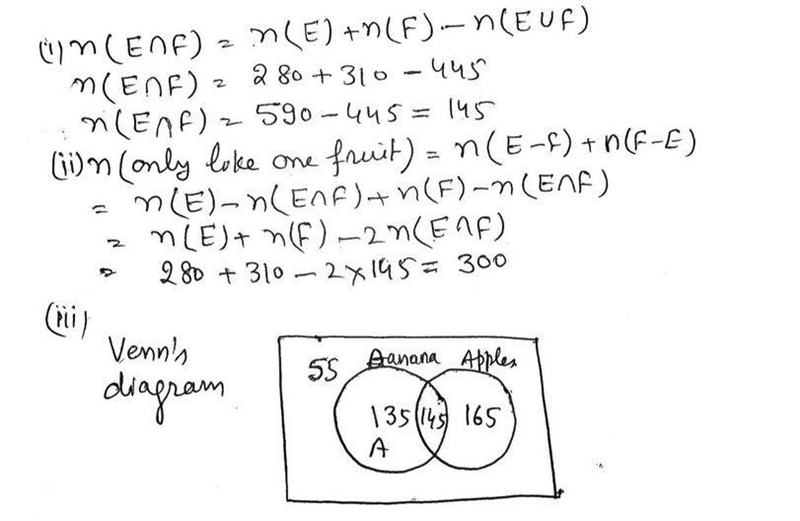 (i) n(E∩F) = n(E)+n(F)-n(E∪F)
n(E∩F) = 280+310-445
n(E∩F) = 590-445 = 145
(ii) n(only like one fruit) = n(E-F)+n(F-E)
= n(E)-n(E∩F)+n(F)-n(E∩F)
= n(E)+n(F)-2n(E∩F)
= 280+310-2×145 = 300
(iii)
Venn's
diagram
55 Banana Apples
135 145 165
A